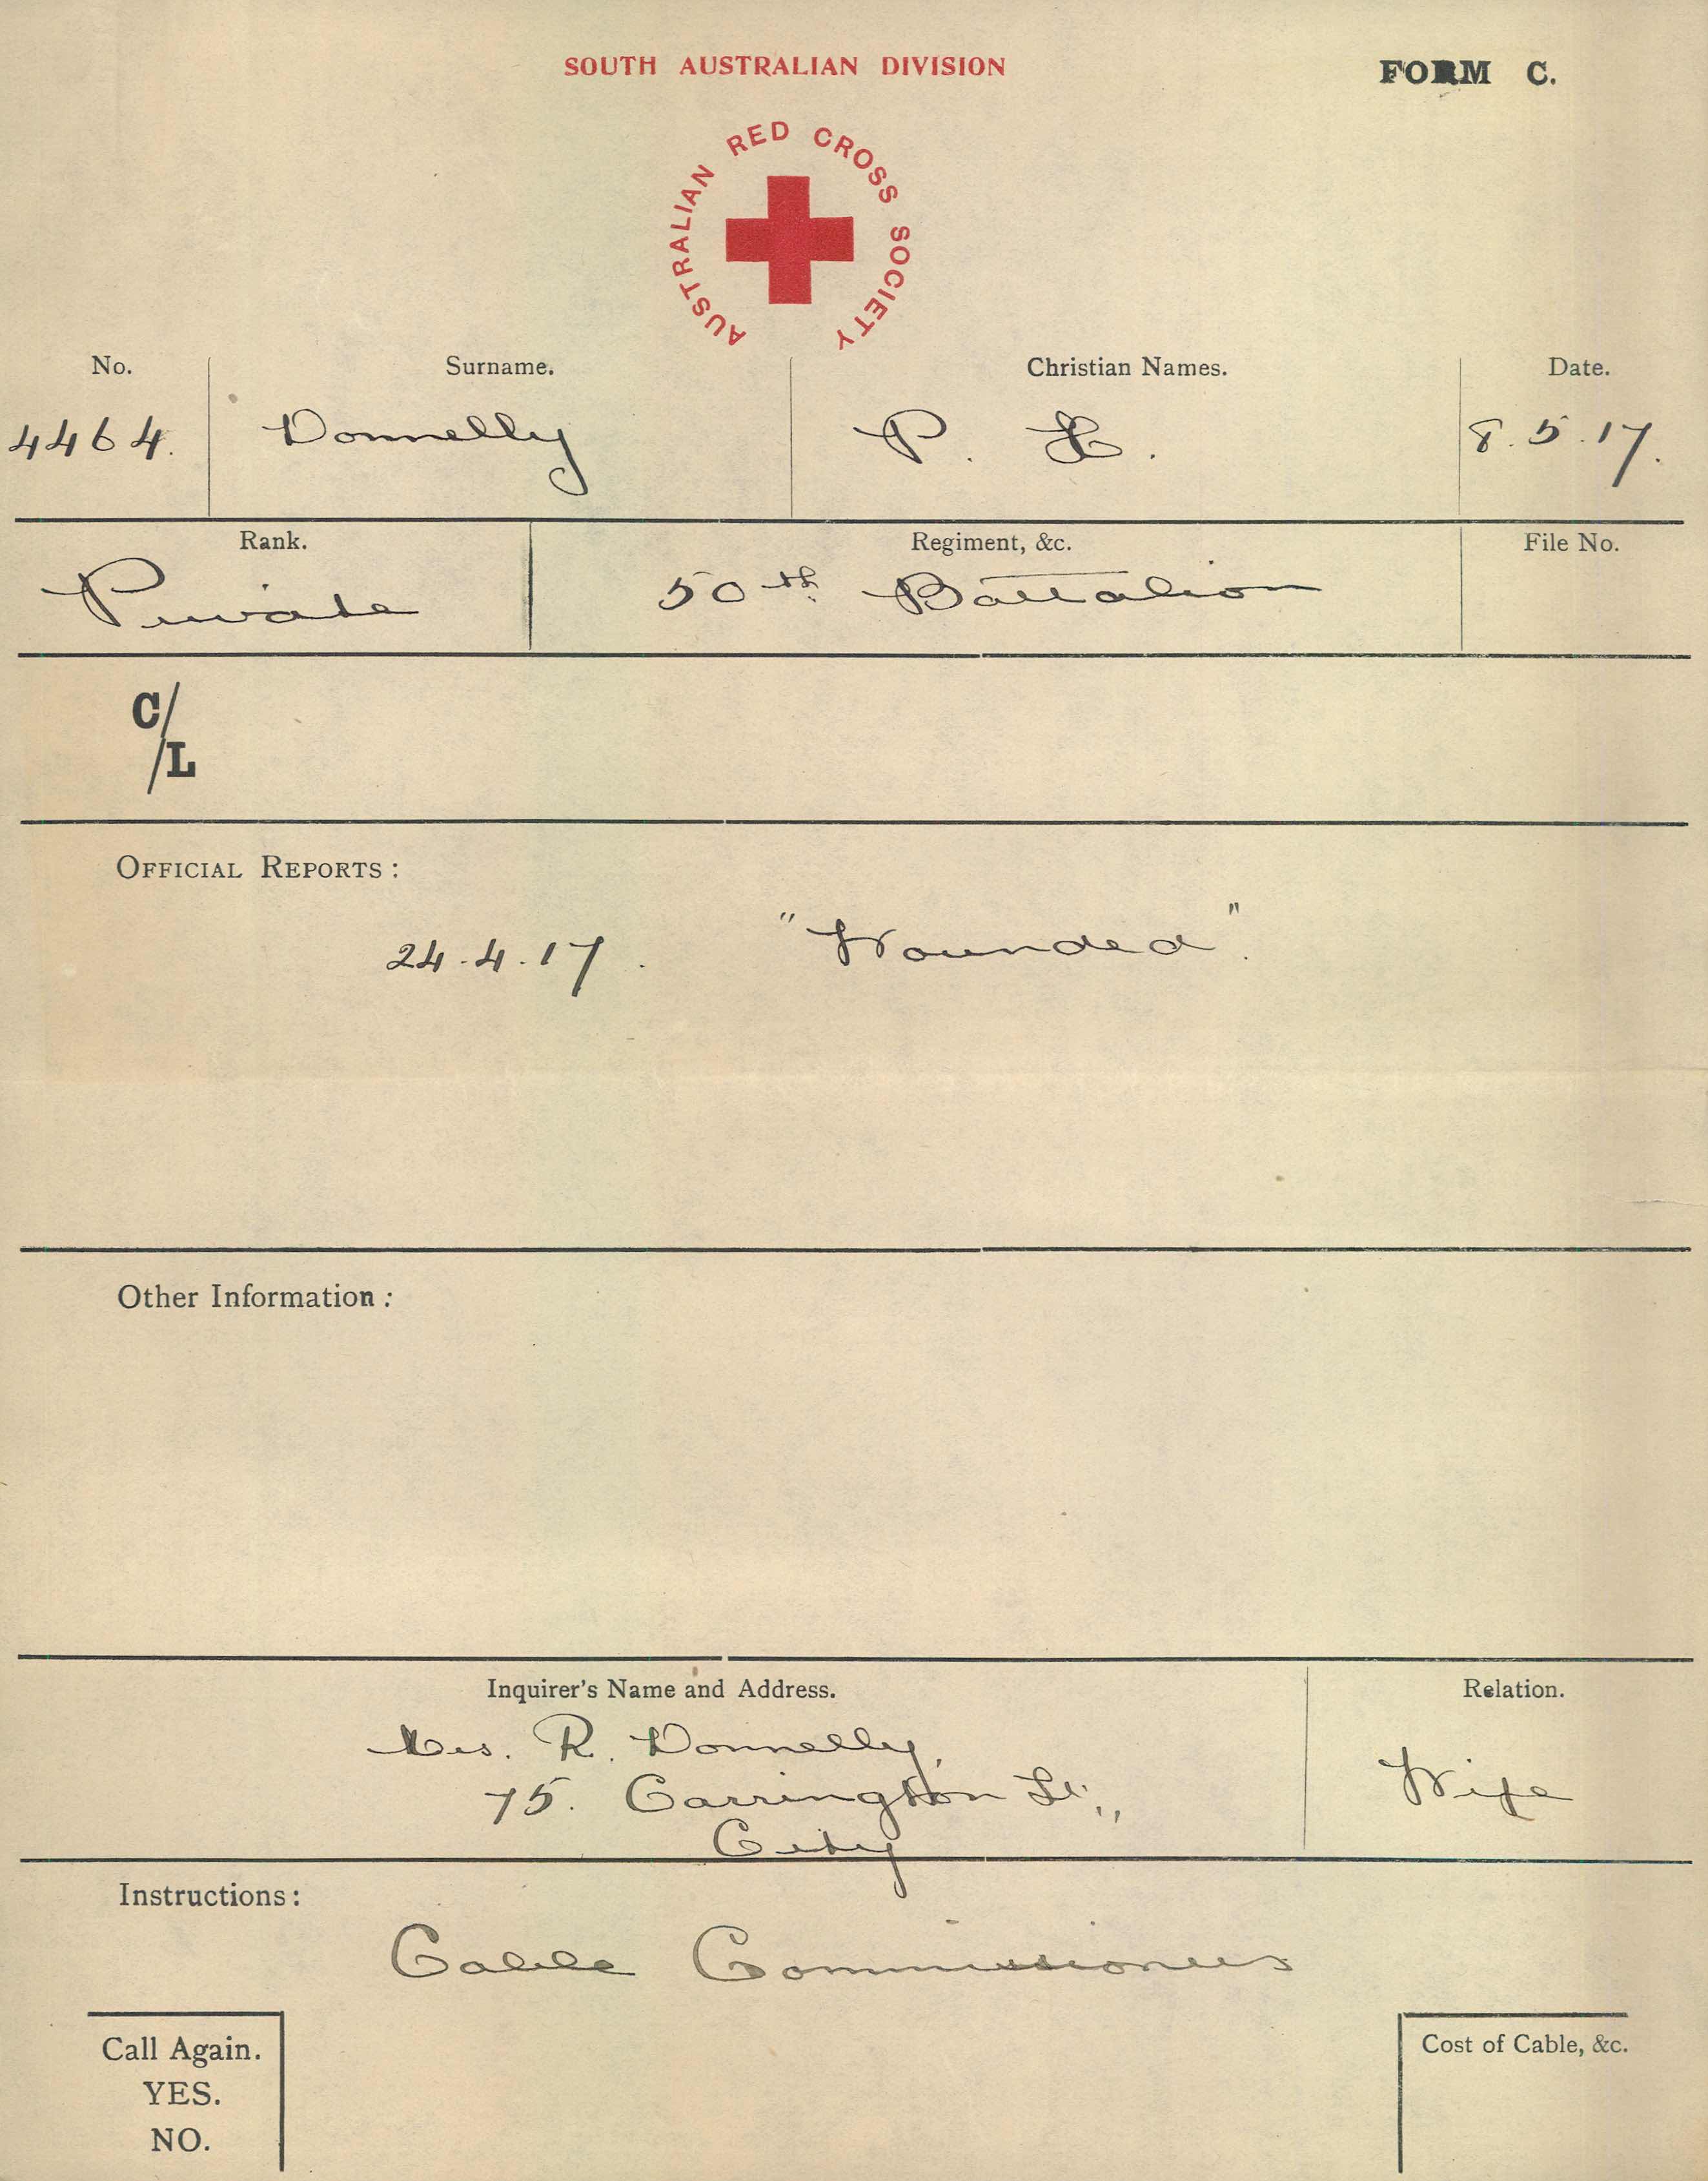 SOUTH AUSTRALIAN DIVISION
FORM C.
AUSTRALIAN RED CROSS SOCIETY
No. Surname. Christian Names. Date.
4464. Donnelly P. H. 8.5.17.
Rank. Regiment, &c. File No.
Private 50th Battalion
C/
/L
OFFICIAL REPORTS:
24.4.17. "Wounded".
Other Information:
Inquirer's Name and Address. Relation.
Mrs. R. Donnelly,
75. Carrington St., Wife
City
Instructions:
Cable Commissioners
Call Again. Cost of Cable, &c.
YES.
NO.